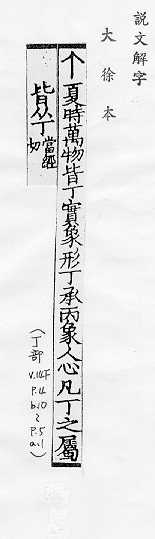 説文解字
大徐本
个夏時萬物皆丁實象形丁承丙象人心凡丁之屬
皆从丁當經切
(丁部
V.14下
P.4
b.10
~
P.5
a.1)